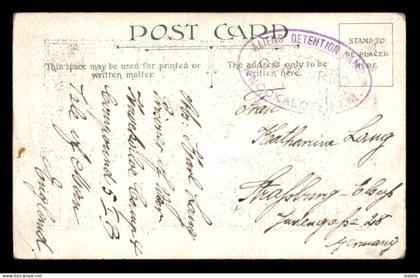 POST CARD
This space may be used for printed or
written matter.
The address only to be
written here.
STAMP TO
BE PLACED
HERE
ALIENS DETENTION
KNOCKALOE I.O.M.
Abs. Karl Lang
Prisoner of War
Knockaloe Camp 4
Compound 5 I B
Isle of Man
England
Frau
Katharina Lang
Straßburg Elsaß
28
Germany